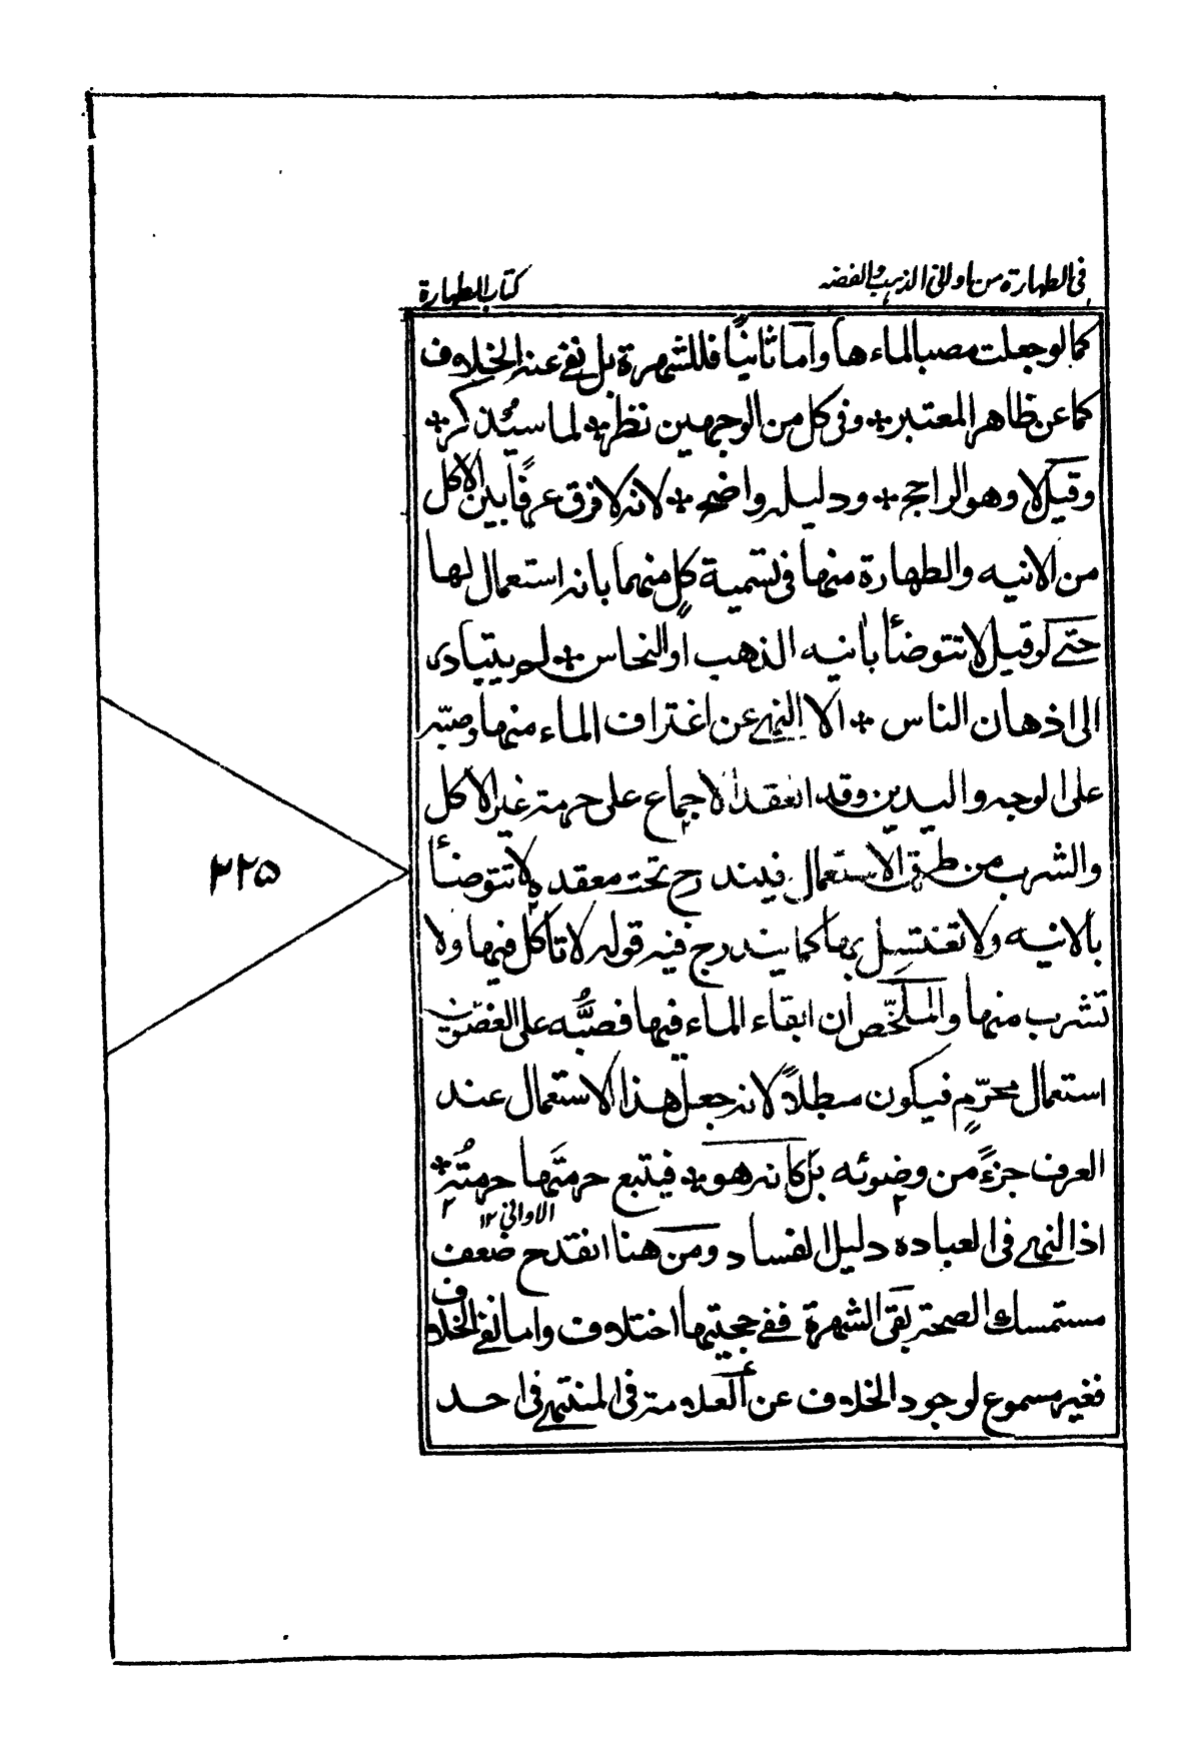 فى الطهارة من اوانى الذهب والفضه
كتاب الطهارة
كما لو جعلت مصب الماء ها واما ثانيًا فللشهرة بل نفى عنه الخلاف
كما عن ظاهر المعتبر * وفى كل من الوجهين نظر * لما سيُذكر *
وقيل لا وهو الراجح * ودليله واضح * لانه لا فرق عرفًا بين الاكل
من الانيه والطهارة منها فى تسمية كلٍ منهما بانه استعمال لها
حتى لو قيل لا تتوضأ بانيه الذهب او النحاس * لم يتبادر
الى اذهان الناس * الا النهى عن اغتراف الماء منها وصبّه
على الوجه واليدين وقد انعقد الاجماع على حرمة غير الاكل
والشرب من طرق الاستعمال فيندرج تحت معقده لا تتوضأ
بالانيه ولا تغتسل بها كما يندرج فيه قوله لا تاكل فيها ولا
تشرب منها والملخّص ان ابقاء الماء فيها فصبُّه على الغضون
استعمال محرّمٍ فيكون مبطلاً لانه جعل هذا الاستعمال عند
العرف جزءً من وضوئه بل كانه هو * فيتبع حرمتَها حرمتُه *
الاوانى ۱۲
اذ النهى فى العباده دليل الفساد ومن هنا انقدح ضعف
مستمسك الصحة بقى الشهرة ففى حجيتها اختلاف واما نفى الخلاف
فغير مسموع لوجود الخلاف عن العلامة فى المنتهى فى احد
۲۲۵